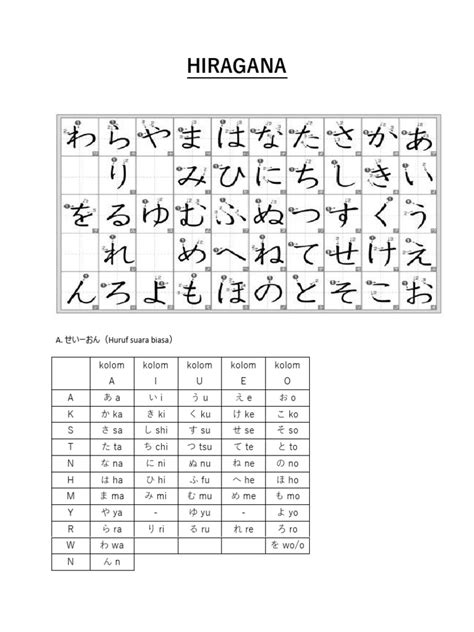 HIRAGANA
わ ら や ま は な た さ か あ
り み ひ に ち し き い
を る ゆ む ふ ぬ つ す く う
れ め へ ね て せ け え
ん ろ よ も ほ の と そ こ お
A. せいーおん（Huruf suara biasa）
kolom kolom kolom kolom kolom
A I U E O
A あ a い i う u え e お o
K か ka き ki く ku け ke こ ko
S さ sa し shi す su せ se そ so
T た ta ち chi つ tsu て te と to
N な na に ni ぬ nu ね ne の no
H は ha ひ hi ふ fu へ he ほ ho
M ま ma み mi む mu め me も mo
Y や ya - ゆ yu - よ yo
R ら ra り ri る ru れ re ろ ro
W わ wa を wo/o
N ん n